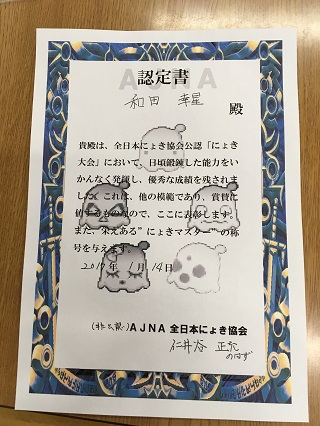 AJNA
認定書
和田 幸星
殿
貴殿は、全日本にょき協会公認「にょき
大会」において、日頃鍛錬した能力をい
かんなく発揮し、優秀な成績を残されま
した。これは、他の模範であり、賞賛に
値するものなので、ここに表彰します。
また、“栄えある”にょきマスター”の称
号を与えます。
年 1月 14日
(非公認)AJNA 全日本にょき協会
仁井谷 正充
のはず